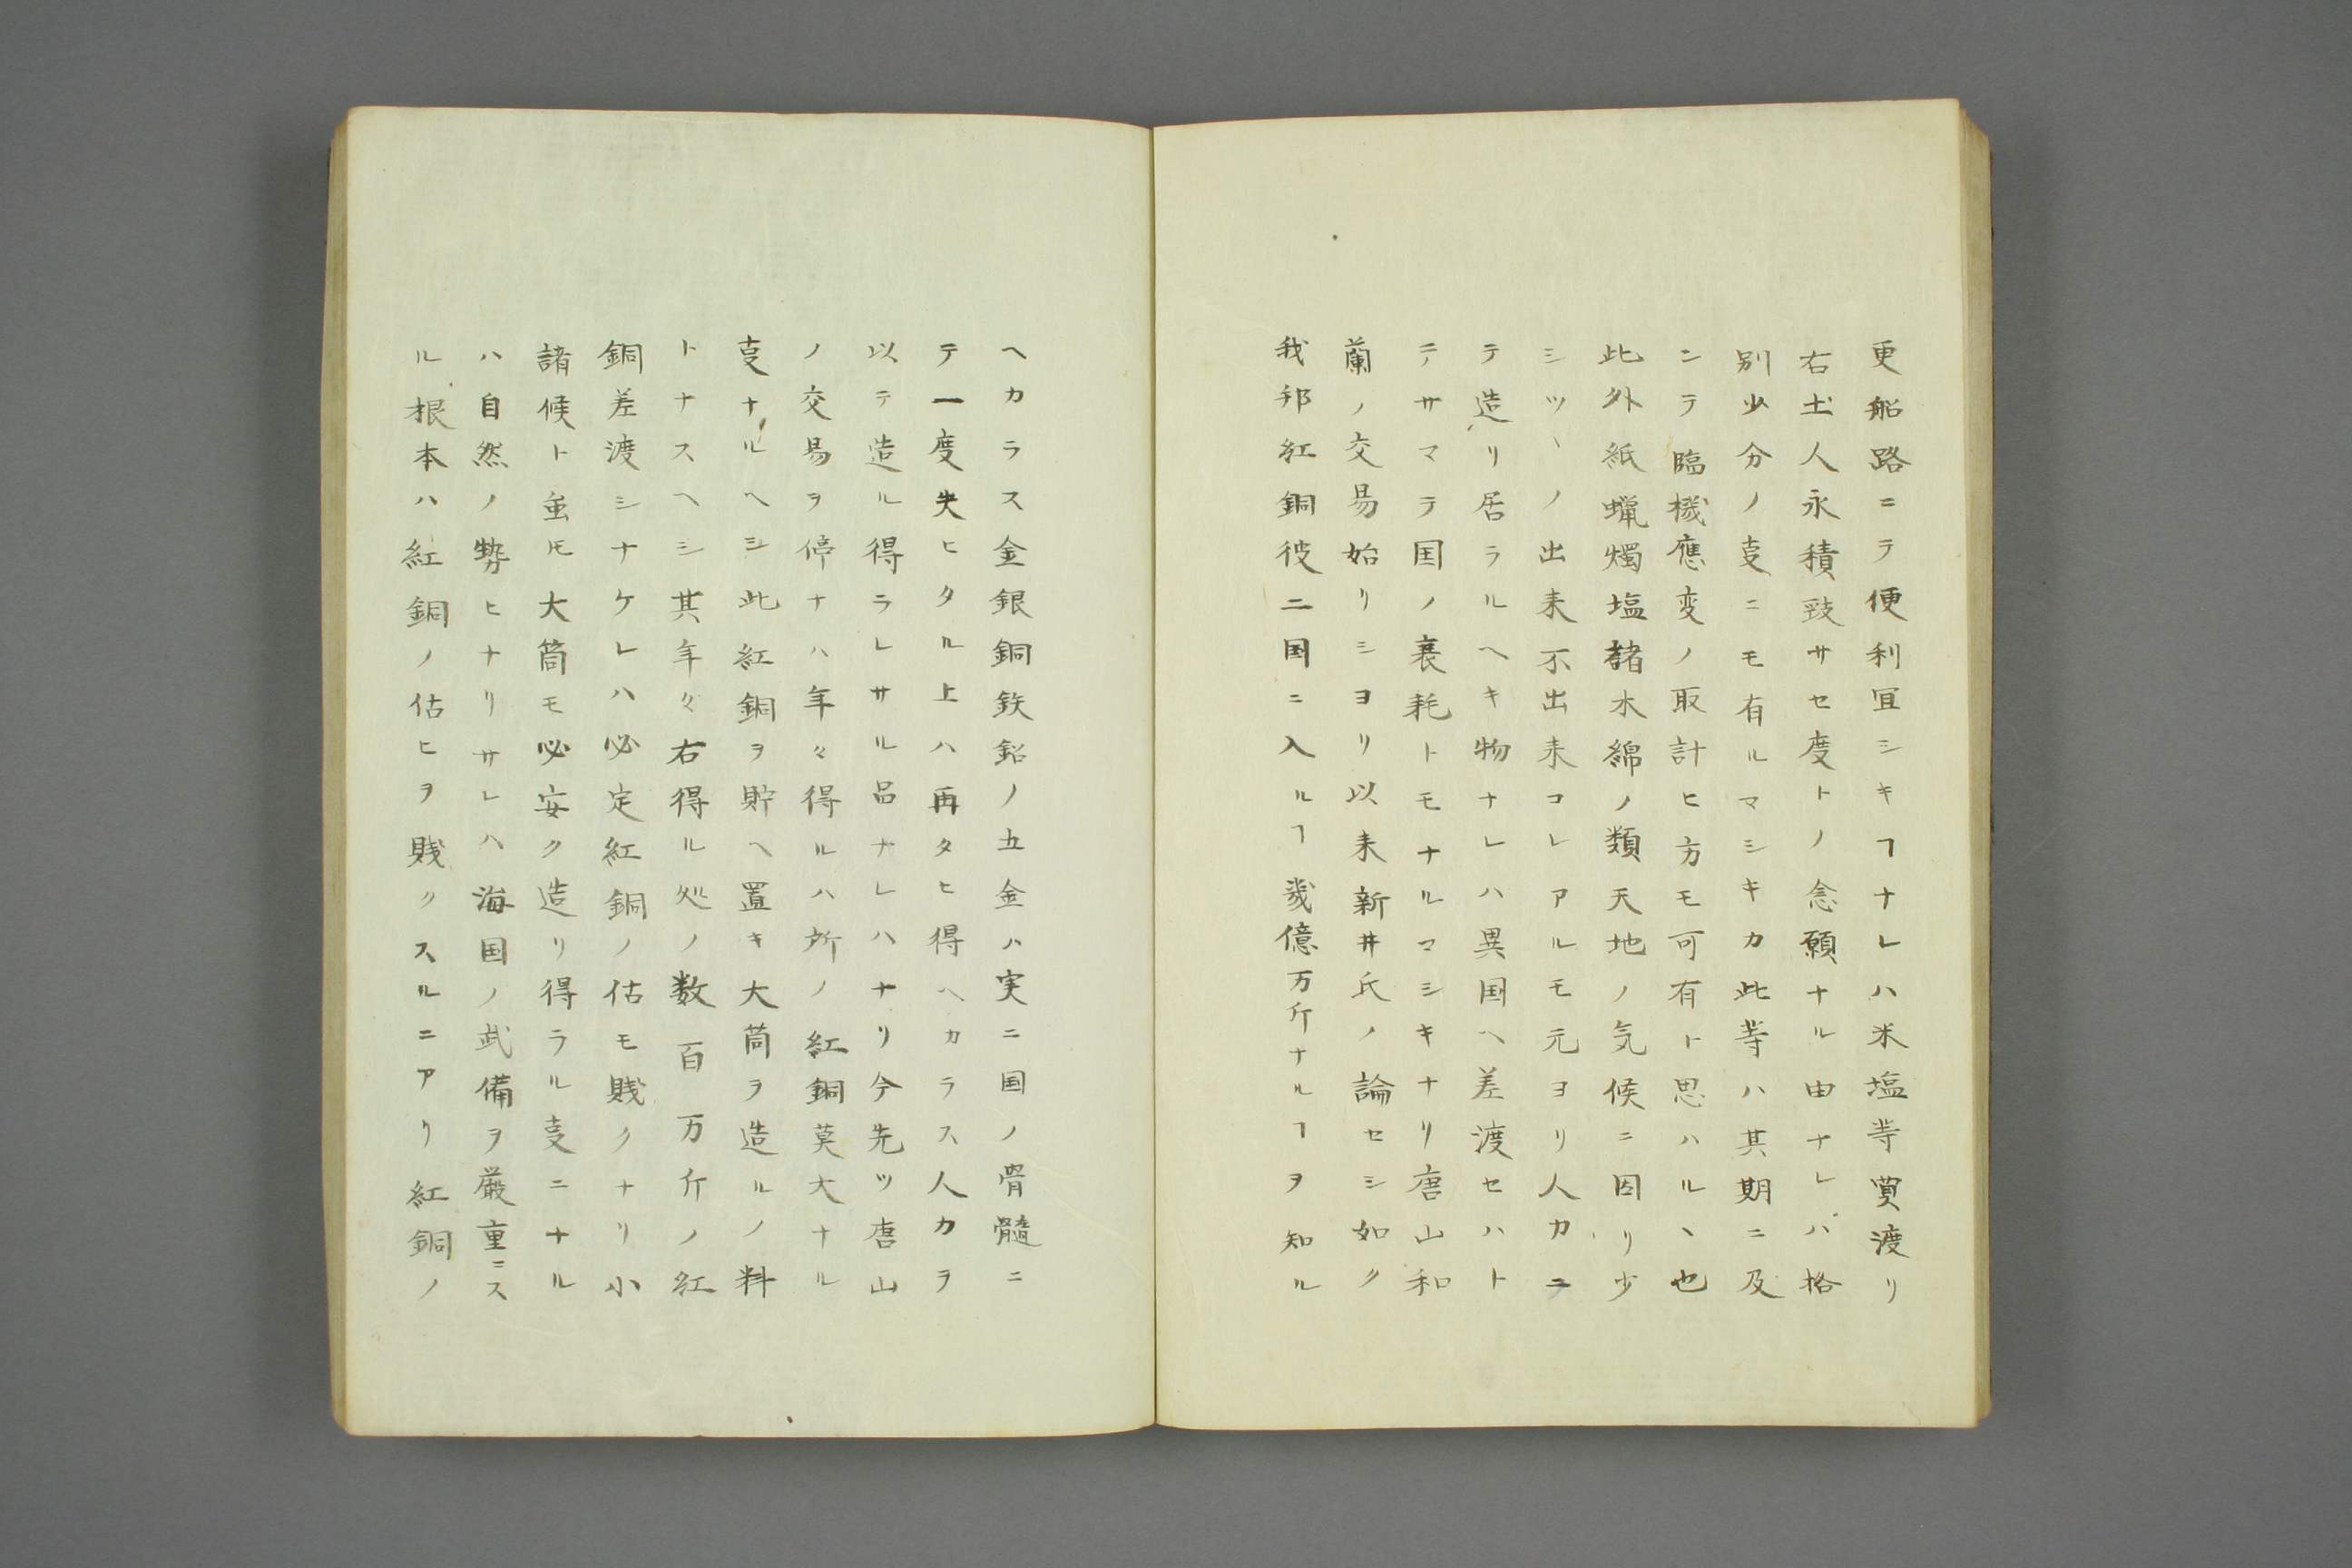 更船路ニテ便利宜シキヿナレハ米塩等買渡リ
右土人永積致サセ度トノ念願ナル由ナレハ格
別少分ノ叓ニモ有ルマシキカ此等ハ其期ニ及
ンテ臨機應変ノ取計ヒ方モ可有ト思ハルヽ也
此外紙蝋燭塩諸木綿ノ類天地ノ気候ニ因リ少
シツヽノ出来不出来コレアルモ元ヨリ人力ニ
テ造リ居ラルヘキ物ナレハ異国ヘ差渡セハト
テサマテ国ノ衰耗トモナルマシキナリ唐山和
蘭ノ交易始リシヨリ以来新井氏ノ論セシ如ク
我邦紅銅彼二国ニ入ルヿ幾億万斤ナルヿヲ知ル
ヘカラス金銀銅鉄鉛ノ五金ハ実ニ国ノ骨髄ニ
テ一度失ヒタル上ハ再タヒ得ヘカラス人力ヲ
以テ造ル得ラレサル品ナレハナリ今先ツ唐山
ノ交易ヲ停ナハ年々得ルハ所ノ紅銅莫大ナル
叓ナルヘシ此紅銅ヲ貯ヘ置キ大筒ヲ造ルノ料
トナスヘシ其年々右得ル処ノ数百万斤ノ紅
銅差渡シナケレハ必定紅銅ノ估モ賎クナリ小
諸候ト虽𪜈大筒モ必安ク造リ得ラル叓ニナル
ハ自然ノ勢ヒナリサレハ海国ノ武備ヲ厳重ニス
ル根本ハ紅銅ノ估ヒヲ賎クスルニアリ紅銅ノ